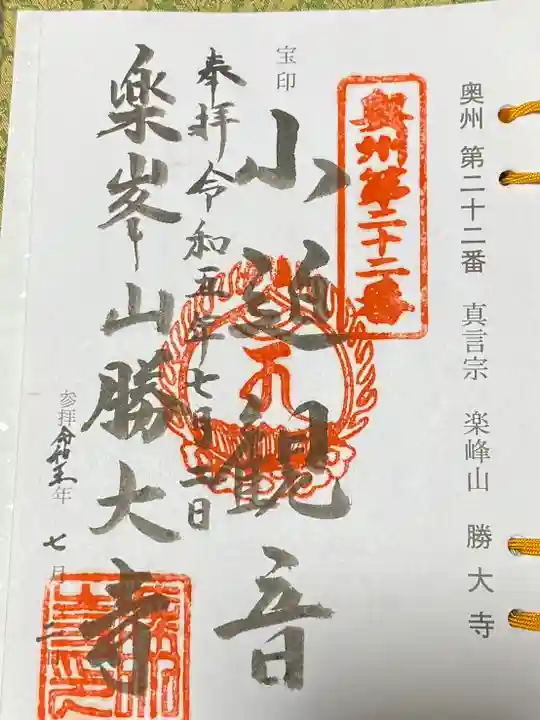 奥州 第二十二番 真言宗 楽峰山 勝大寺
奥州第二十二番
宝印
小迫観音
奉拝 令和五年七月二日
楽峯山勝大寺
参拝 令和五年 七月 二